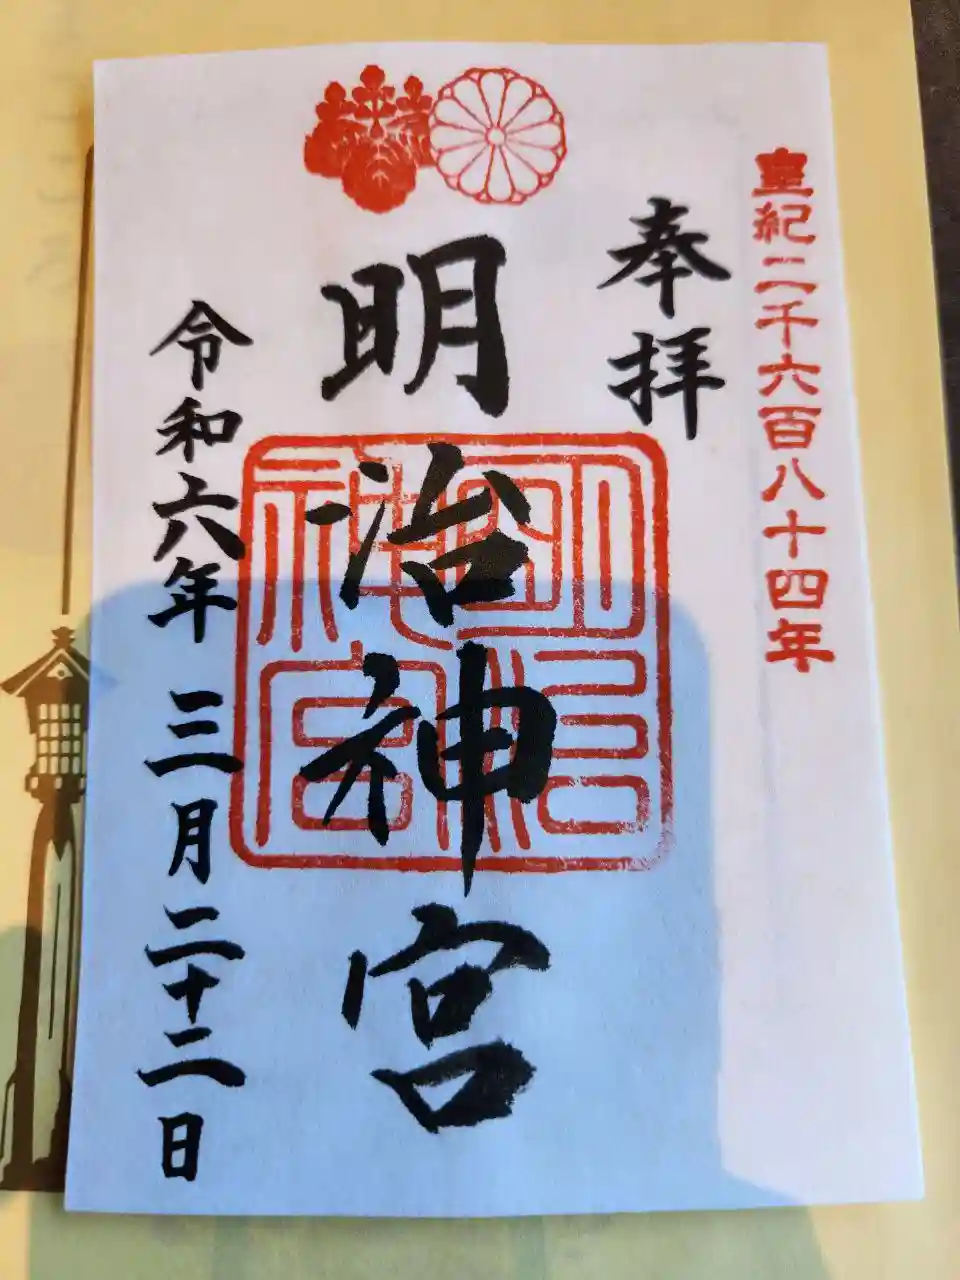 皇紀二千六百八十四年
奉拝
明治神宮
明治神宮
令和六年三月二十二日